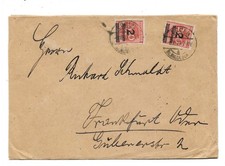 Herrn
Richard Schmaldt
Frankfurt Oder
Gubenerstr 2